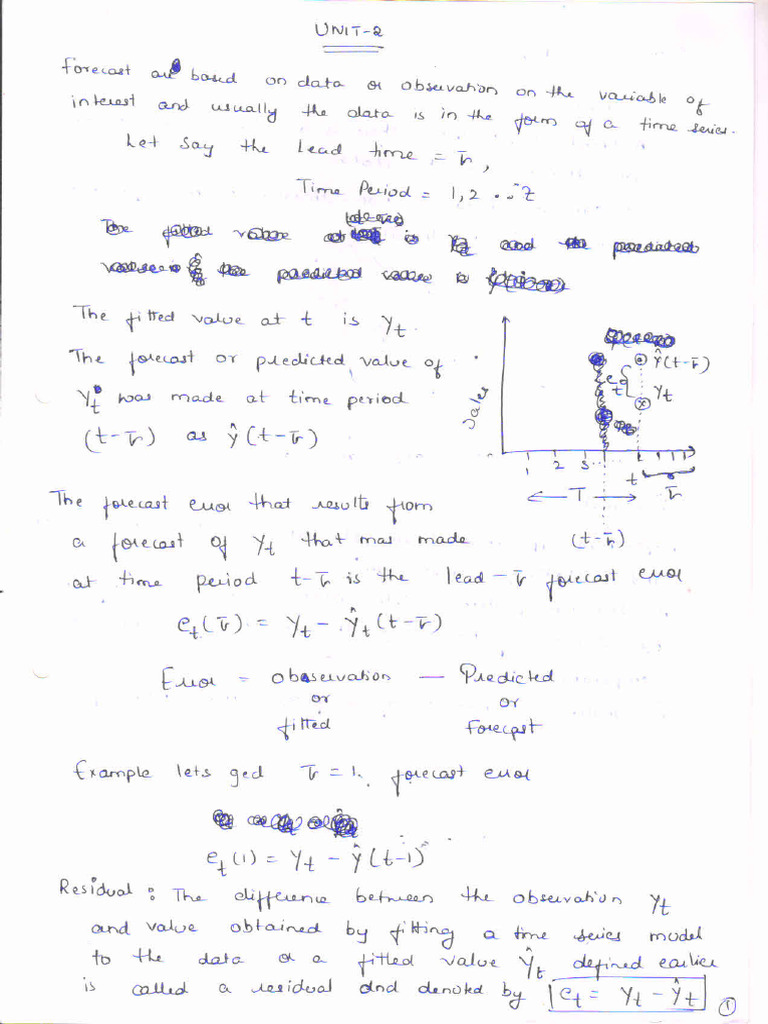 UNIT-2
Forecast are based on data or observation on the variable of
interest and usually the data is in the form of a time series.
Let say the Lead time = τ,
Time Period = 1, 2 ... z
The fitted value at t is yt
The forecast or predicted value of
yt was made at time period
(t-τ) as ŷ(t-τ)
ŷ(t-τ)
et
yt
Sales
1 2 3 ... t
T τ
(t-τ)
The forecast error that results from
a forecast of yt that was made
at time period t-τ is the lead-τ forecast error
et(τ) = yt - ŷt(t-τ)
Error = Observation — Predicted
or or
fitted Forecast
Example lets τ = 1. forecast error
et(1) = yt - ŷ(t-1)
Residual : The difference between the observation yt
and value obtained by fitting a time series model
to the data or a fitted value ŷt defined earlier
is called a residual and denoted by et = yt - ŷt
1